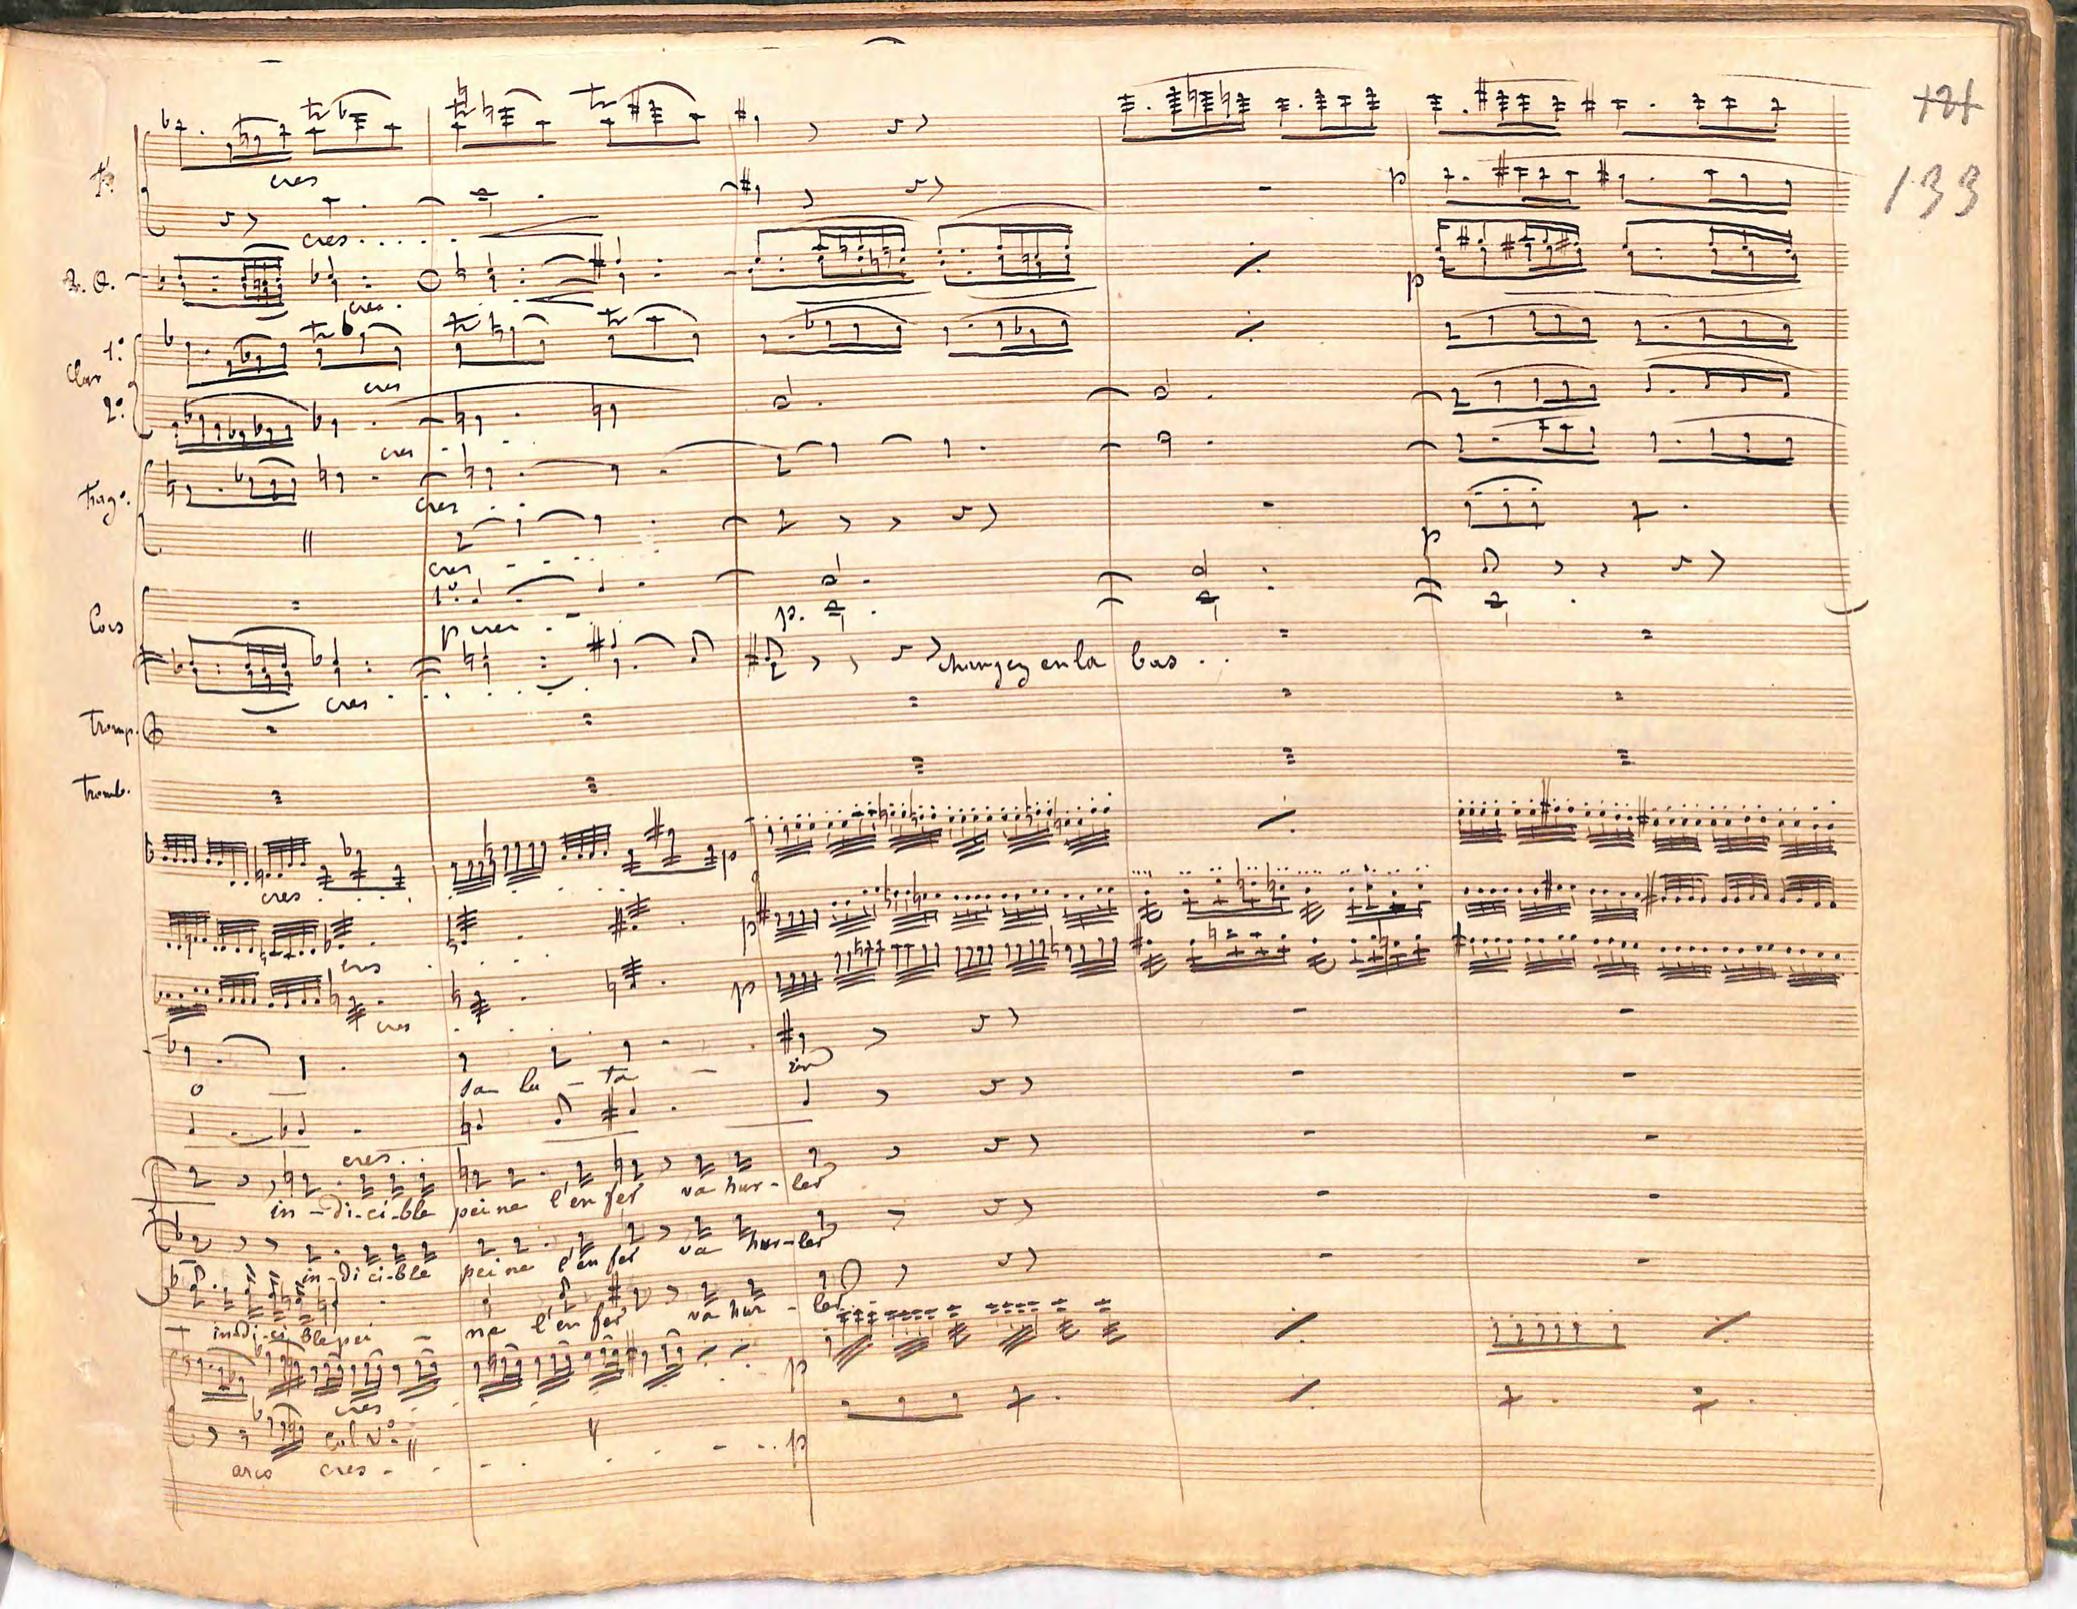 121
133
fl.
cres
cres . . . .
p
cres .
p
Clar
1º
2º
cres
cres -
cres . .
p
cres - - - -
1º
p cres . -
p.
Cors
changez en la bas . .
cres . . . .
Tromp.
Tromb.
cres . . . .
p
cres . . . .
p
cres . . . .
p
o — sa - lu - ta - in
cres . .
in - di - ci - ble peine l'enfer va hur - ler
in - di ci - ble peine l'enfer va hur - ler
in di - ci - ble pei - ne l'enfer va hur - ler
p
cres . . .
col Vº
arco cres - - - - - p